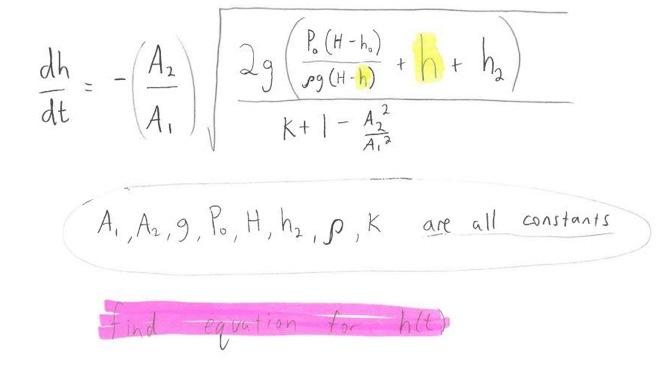 dh/dt = -(A₂/A₁) √(2g (P₀(H-h₀)/ρg(H-h) + h + h₂) / (K+1 - A₂²/A₁²))
A₁, A₂, g, P₀, H, h₂, ρ, K are all constants
find equation for h(t)